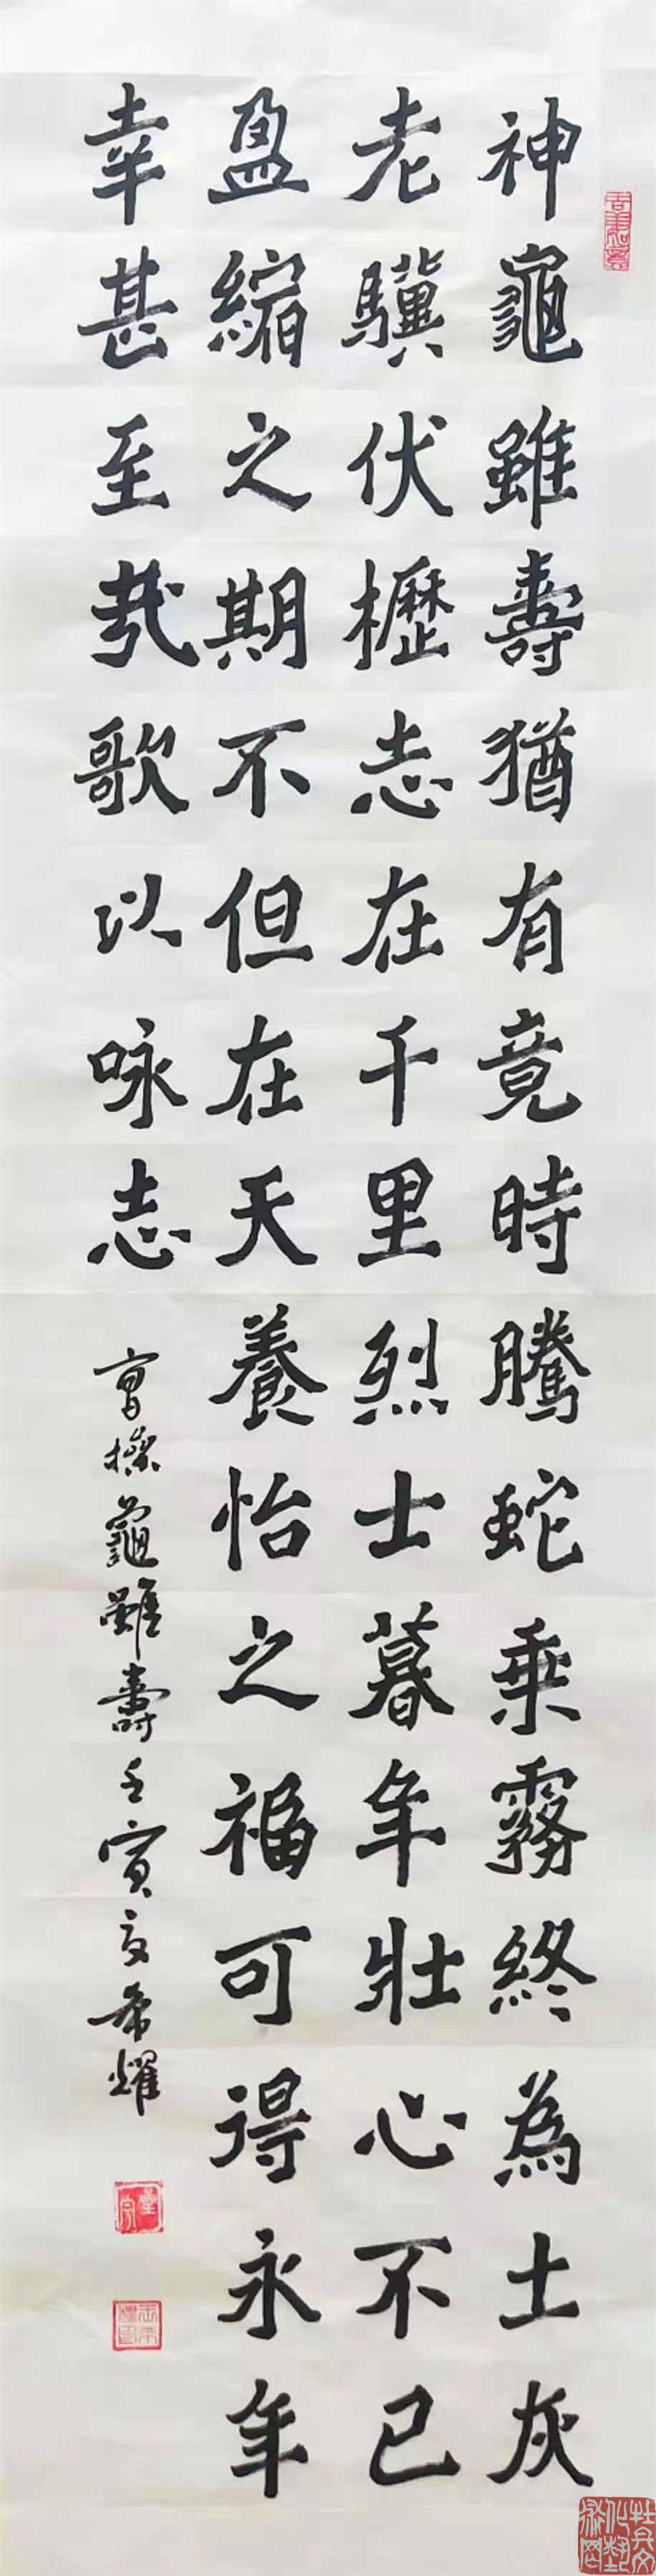 神龜雖壽猶有竟時騰蛇乘霧終為土灰
老驥伏櫪志在千里烈士暮年壯心不已
盈縮之期不但在天養怡之福可得永年
幸甚至哉歌以咏志
曹操龜雖壽壬寅夏希耀